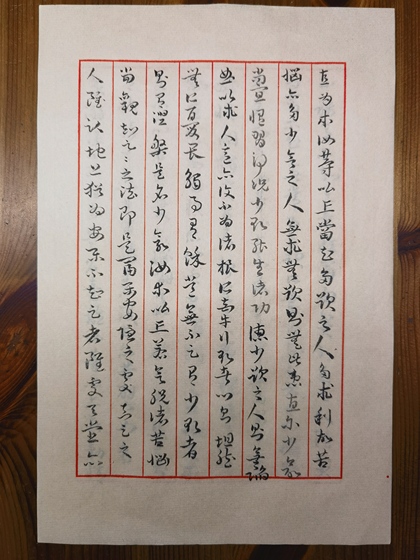 直為本汝等比丘當知多欲之人多求利故苦
惱亦多少欲之人無求無欲則無此患直尔少欲
尚宜修習何況少欲能生諸功德少欲之人則無諂
曲以求人意亦復不為諸根所牽行少欲者心則坦然
無所憂畏觸事有餘常無不足有少欲者
則有涅槃是名少欲汝等比丘若欲脫諸苦惱
當觀知足々之法即是富樂安隱之處知足之
人雖臥地上猶為安樂不知足者雖處天堂亦